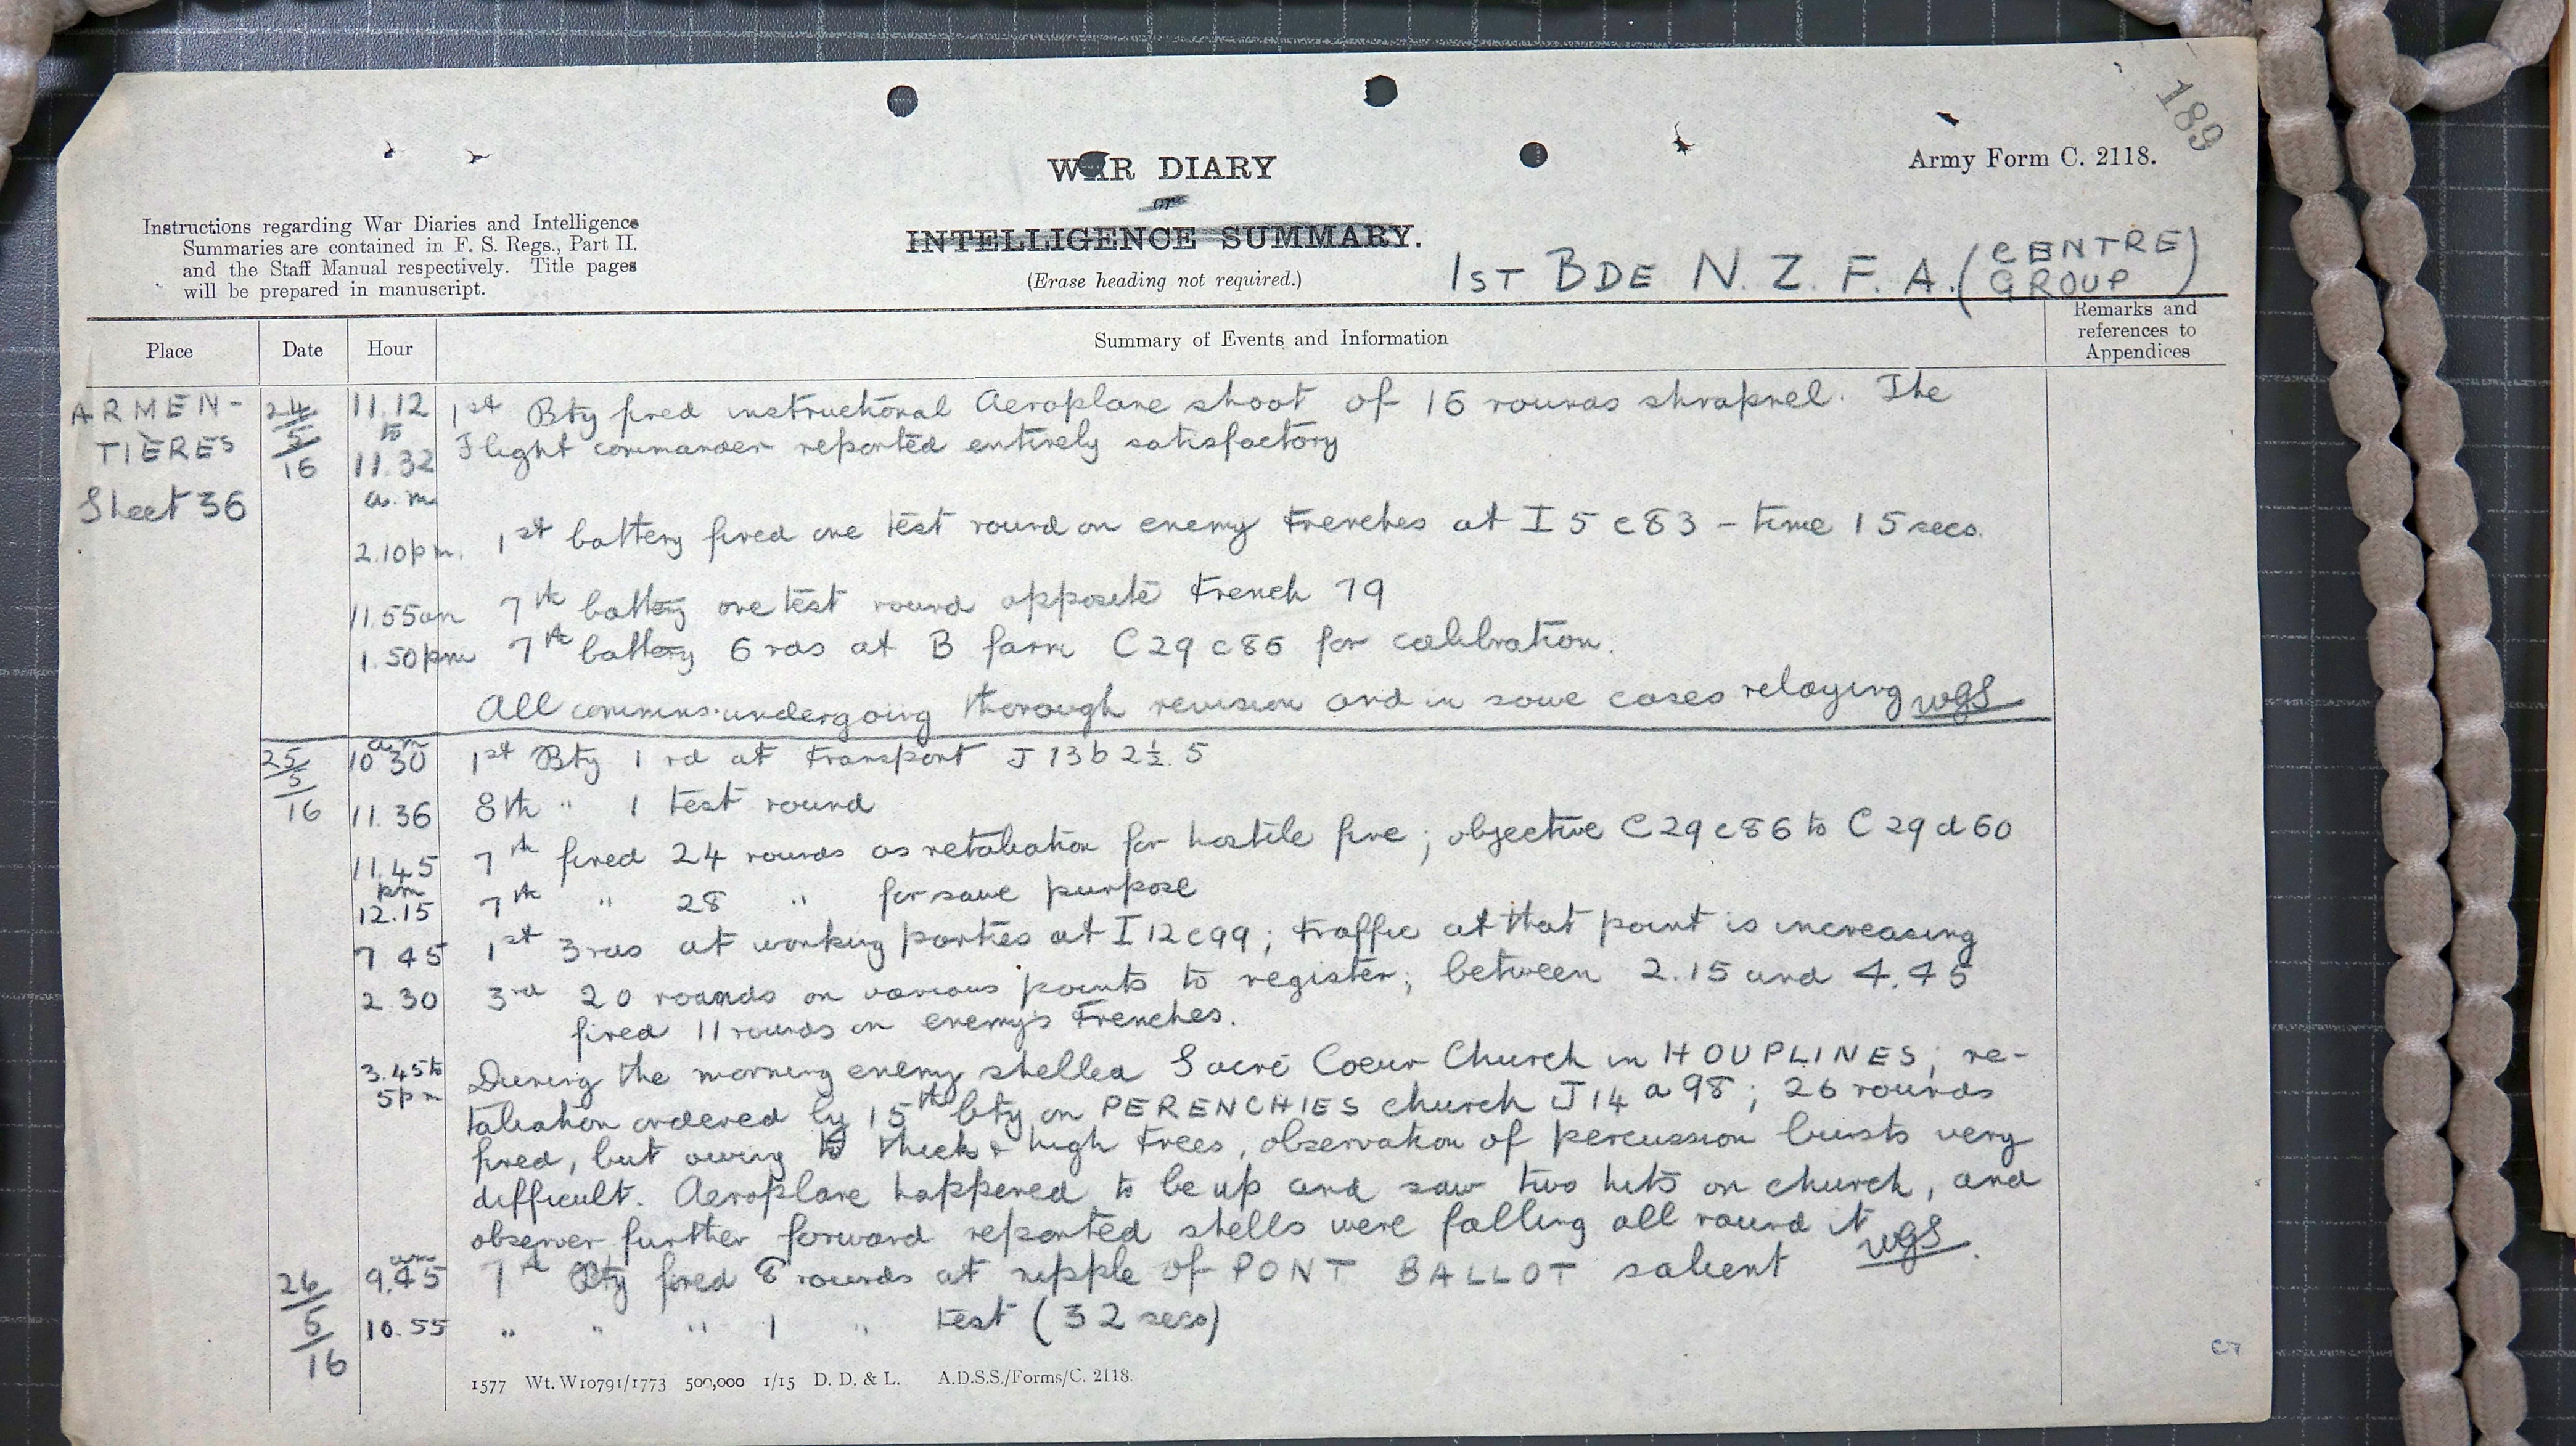 189
Army Form C. 2118.
WAR DIARY
or
INTELLIGENCE SUMMARY.
(Erase heading not required.)
Instructions regarding War Diaries and Intelligence
Summaries are contained in F. S. Regs., Part II.
and the Staff Manual respectively. Title pages
will be prepared in manuscript.
1ST BDE N. Z. F. A. (CENTRE GROUP)
Place Date Hour Summary of Events and Information Remarks and references to Appendices
ARMEN- 24/5/16 11.12 1st Bty fired instructional Aeroplane shoot of 16 rounds shrapnel. The
TIÈRES to 11.32 a.m Flight commander reported entirely satisfactory
Sheet 36
2.10pm. 1st battery fired one test round on enemy trenches at I 5 c 83 - time 15 secs.
11.55am 7th battery one test round opposite trench 79
1.50pm 7th battery 6 rds at B farm C 29 c 86 for calibration.
All commns. undergoing thorough revision and in some cases relaying WGS
25/5/16 10 30 am 1st Bty 1 rd at transport J 13 b 2½. 5
11.36 8th " 1 test round
11.45 7th fired 24 rounds as retaliation for hostile fire; objective C 29 c 86 to C 29 d 60
pm 12.15 7th " 28 " for same purpose
7 45 1st 3 rds at working parties at I 12 c 99; traffic at that point is increasing
2.30 3rd 20 rounds on various points to register; between 2.15 and 4.45
fired 11 rounds on enemy's trenches.
3.45 to 5pm During the morning enemy shelled Sacré Coeur Church in HOUPLINES; re-
taliation ordered by 15th bty on PERENCHIES church J 14 a 98; 26 rounds
fired, but owing to thick & high trees, observation of percussion bursts very
difficult. Aeroplane happened to be up and saw two hits on church, and
observer further forward reported shells were falling all round it WGS.
26/5/16 9.45 am 7th Bty fired 8 rounds at nipple of PONT BALLOT salient
10.55 " " " 1 " test (32 secs)
1577 Wt. W10791/1773 500,000 1/15 D. D. & L. A.D.S.S./Forms/C. 2118.